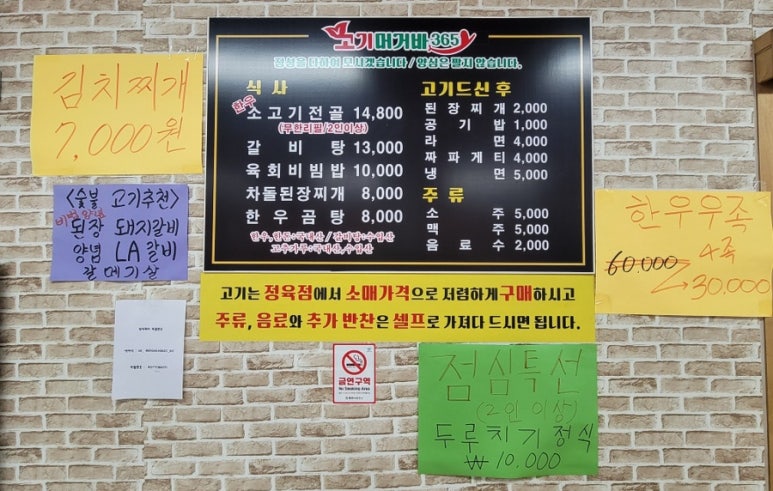 김치찌개
7,000원
<숯불 고기추천>
비법양념
된장 돼지갈비
양념 LA갈비
갈메기살
고기머거바365
정성을 다하여 모시겠습니다 / 양심은 팔지 않습니다.
식사
한우
소고기전골 14,800
(무한리필/2인이상)
갈비탕 13,000
육회비빔밥 10,000
차돌된장찌개 8,000
한우곰탕 8,000
한우,한돈:국내산 / 갈비탕:수입산
고추가루:국내산,수입산
고기드신 후
된장찌개 2,000
공기밥 1,000
라면 4,000
짜파게티 4,000
냉면 5,000
주류
소주 5,000
맥주 5,000
음료수 2,000
한우우족
4족
60.000
30.000
고기는 정육점에서 소매가격으로 저렴하게구매하시고
주류, 음료와 추가 반찬은 셀프로 가져다 드시면 됩니다.
금연구역
No Smoking Area
점심특선
(2인 이상)
두루치기정식
₩10,000